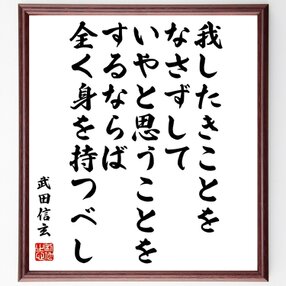 我したきことを
なさずして
いやと思うことを
するならば
全く身を持つべし
武田信玄